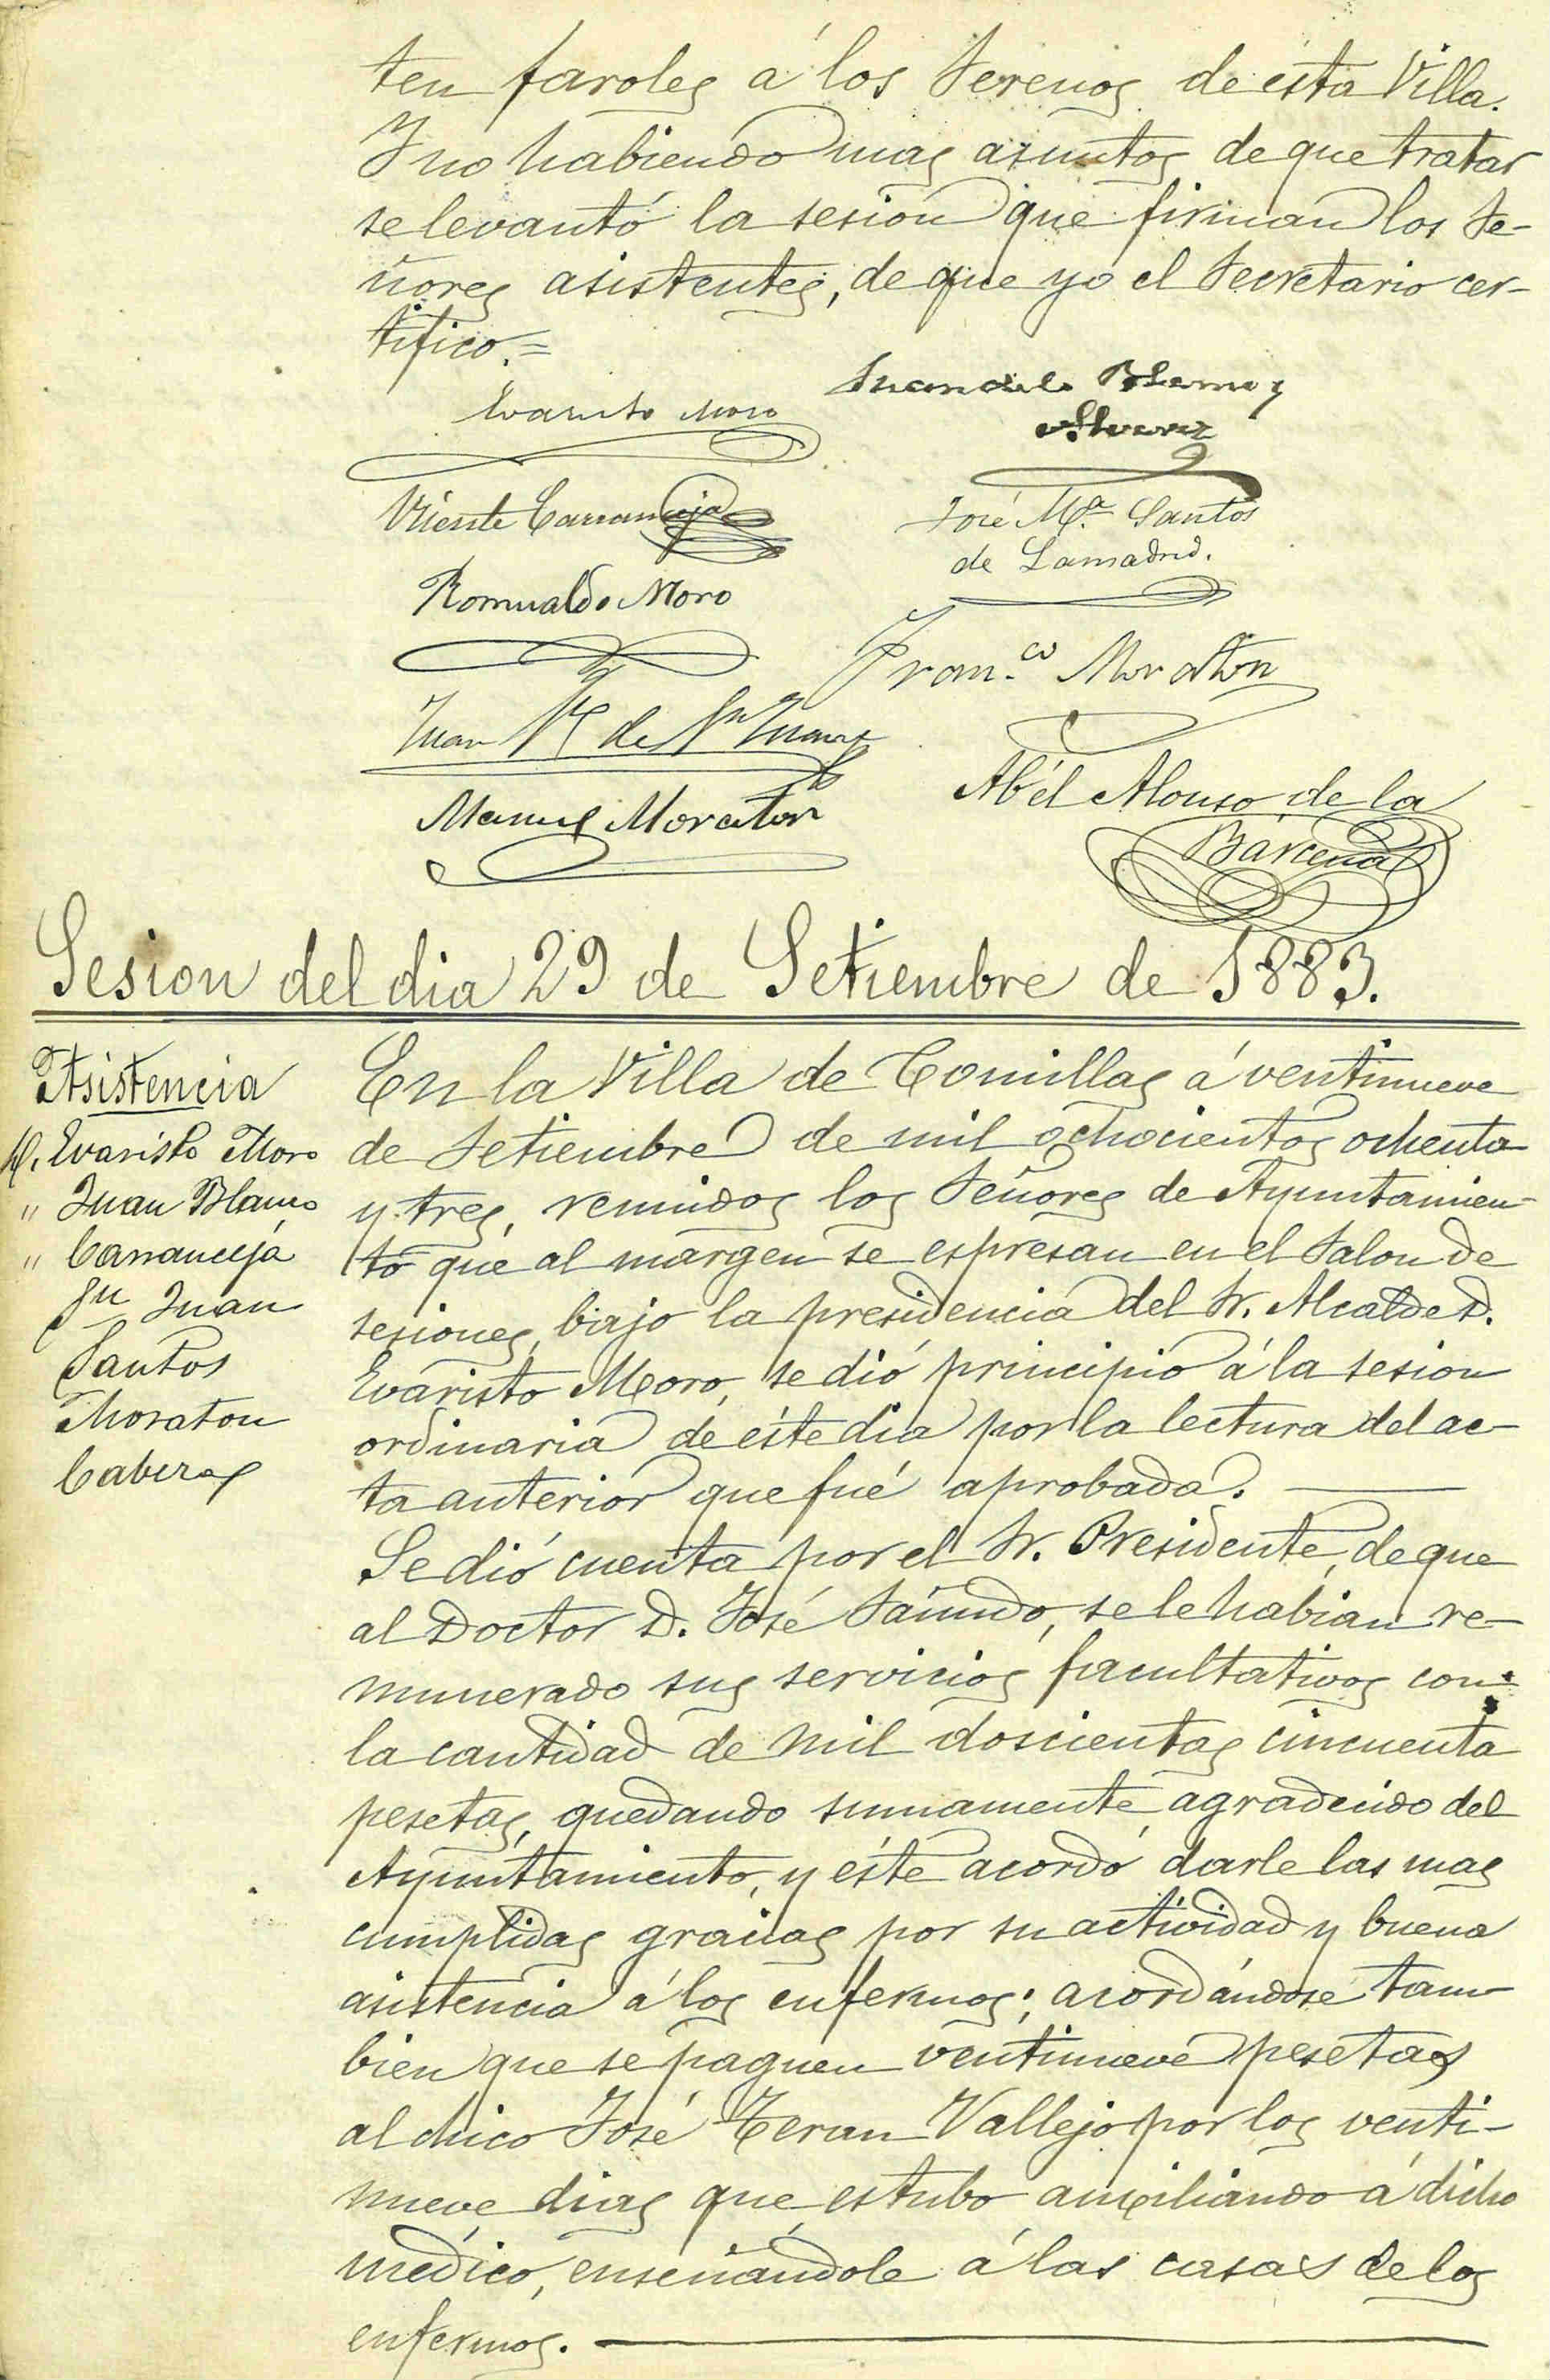 ten faroles á los Serenos de ésta Villa.
Y no habiendo mas asuntos de que tratar
se levantó la sesion que firman los Se-
ñores asistentes, de que yó el Secretario cer-
tifico.=
Evaristo Moro
Juan de la Blanco y
Alvarez
Vicente Carranceja
José M.ª Santos
de Lamadrid.
Romualdo Moro
Fran.co Moraton
Juan de Sn Juan
Manuel Moraton
Abél Alonso de la
Bárcena
Sesion del dia 29 de Setiembre de 1883.
Asistencia
D. Evaristo Moro
" Juan Blanco
" Carranceja
Sn Juan
Santos
Moraton
Cabezas
En la Villa de Comillas á ventinueve
de Setiembre de mil ochocientos ochenta
y tres, reunidos los Señores de Ayuntamien-
to que al margen se espresan en el Salon de
sesiones, bajo la presidencia del Sr. Alcalde D.
Evaristo Moro, se dió principio á la sesion
ordinaria de éste dia por la lectura del ac-
ta anterior que fué aprobada.
Se dió cuenta por el Sr. Presidente, de que
al Doctor D. José Sañudo, se le habian re-
munerado sus servicios facultativos con
la cantidad de mil doscientas cincuenta
pesetas, quedando sumamente agradecido del
Ayuntamiento, y éste acordó darle las mas
cumplidas gracias por su actividad y buena
asistencia á los enfermos; acordándose tam
bien que se paguen ventinueve pesetas
al chico José Teran Vallejo por los venti-
nueve dias que estubo auxiliando á dicho
médico, enseñandole á las casas de los
enfermos.